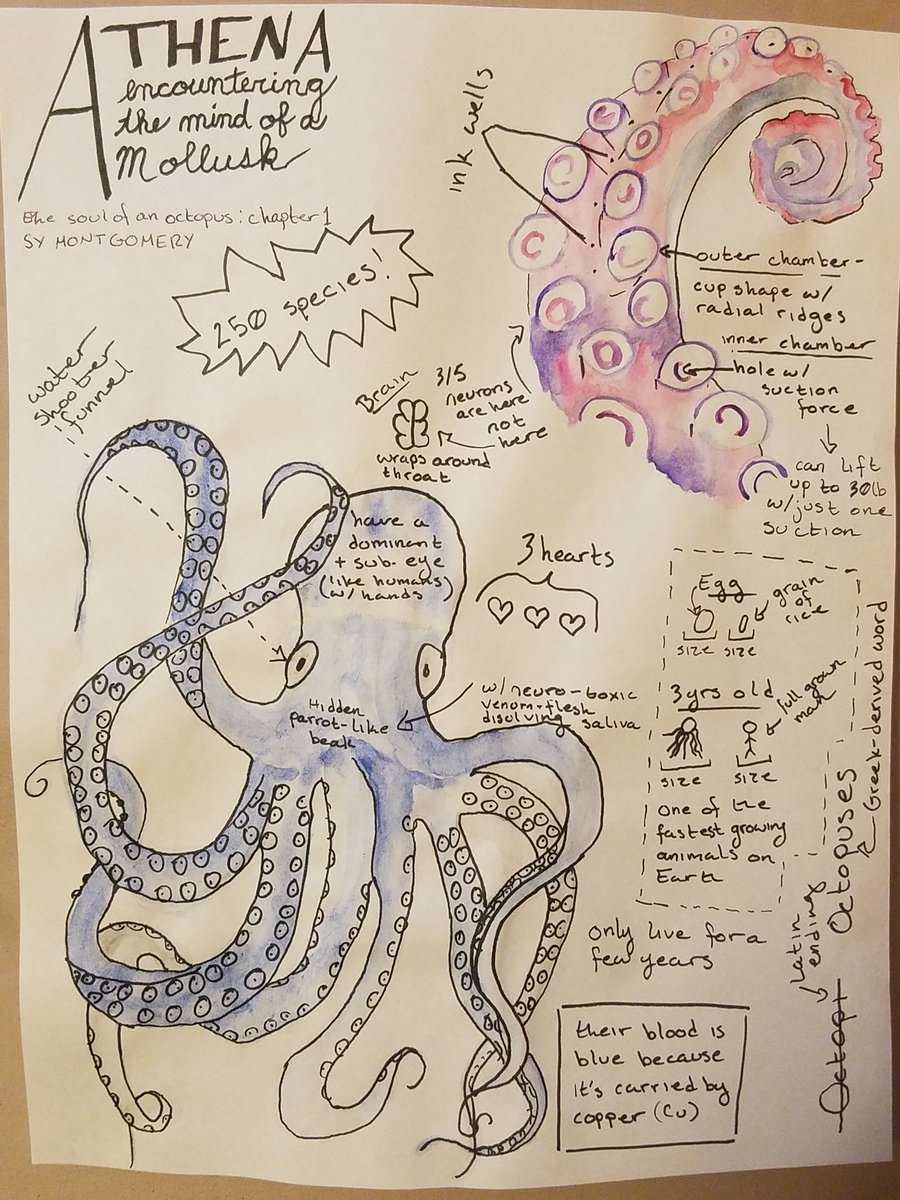 ATHENA
encountering
the mind of a
Mollusk
the soul of an octopus: chapter 1
SY MONTGOMERY
250 species!
ink wells
outer chamber-
cup shape w/
radial ridges
inner chamber
hole w/
suction
force
can lift
up to 30lb
w/just one
suction
water
shooter
funnel
Brain
wraps around
throat
3/5
neurons
are here
not
here
have a
dominant
+ sub. eye
(like humans)
w/ hands
3 hearts
Hidden
parrot-like
beak
w/neuro-toxic
venom+flesh
disolving saliva
Egg
size
grain
of
rice
size
3 yrs old
size
full grown
man
size
one of the
fastest growing
animals on
Earth
only live for a
few years
Octopi
Latin
ending
Octopuses
Greek-derived word
their blood is
blue because
it's carried by
copper (Cu)